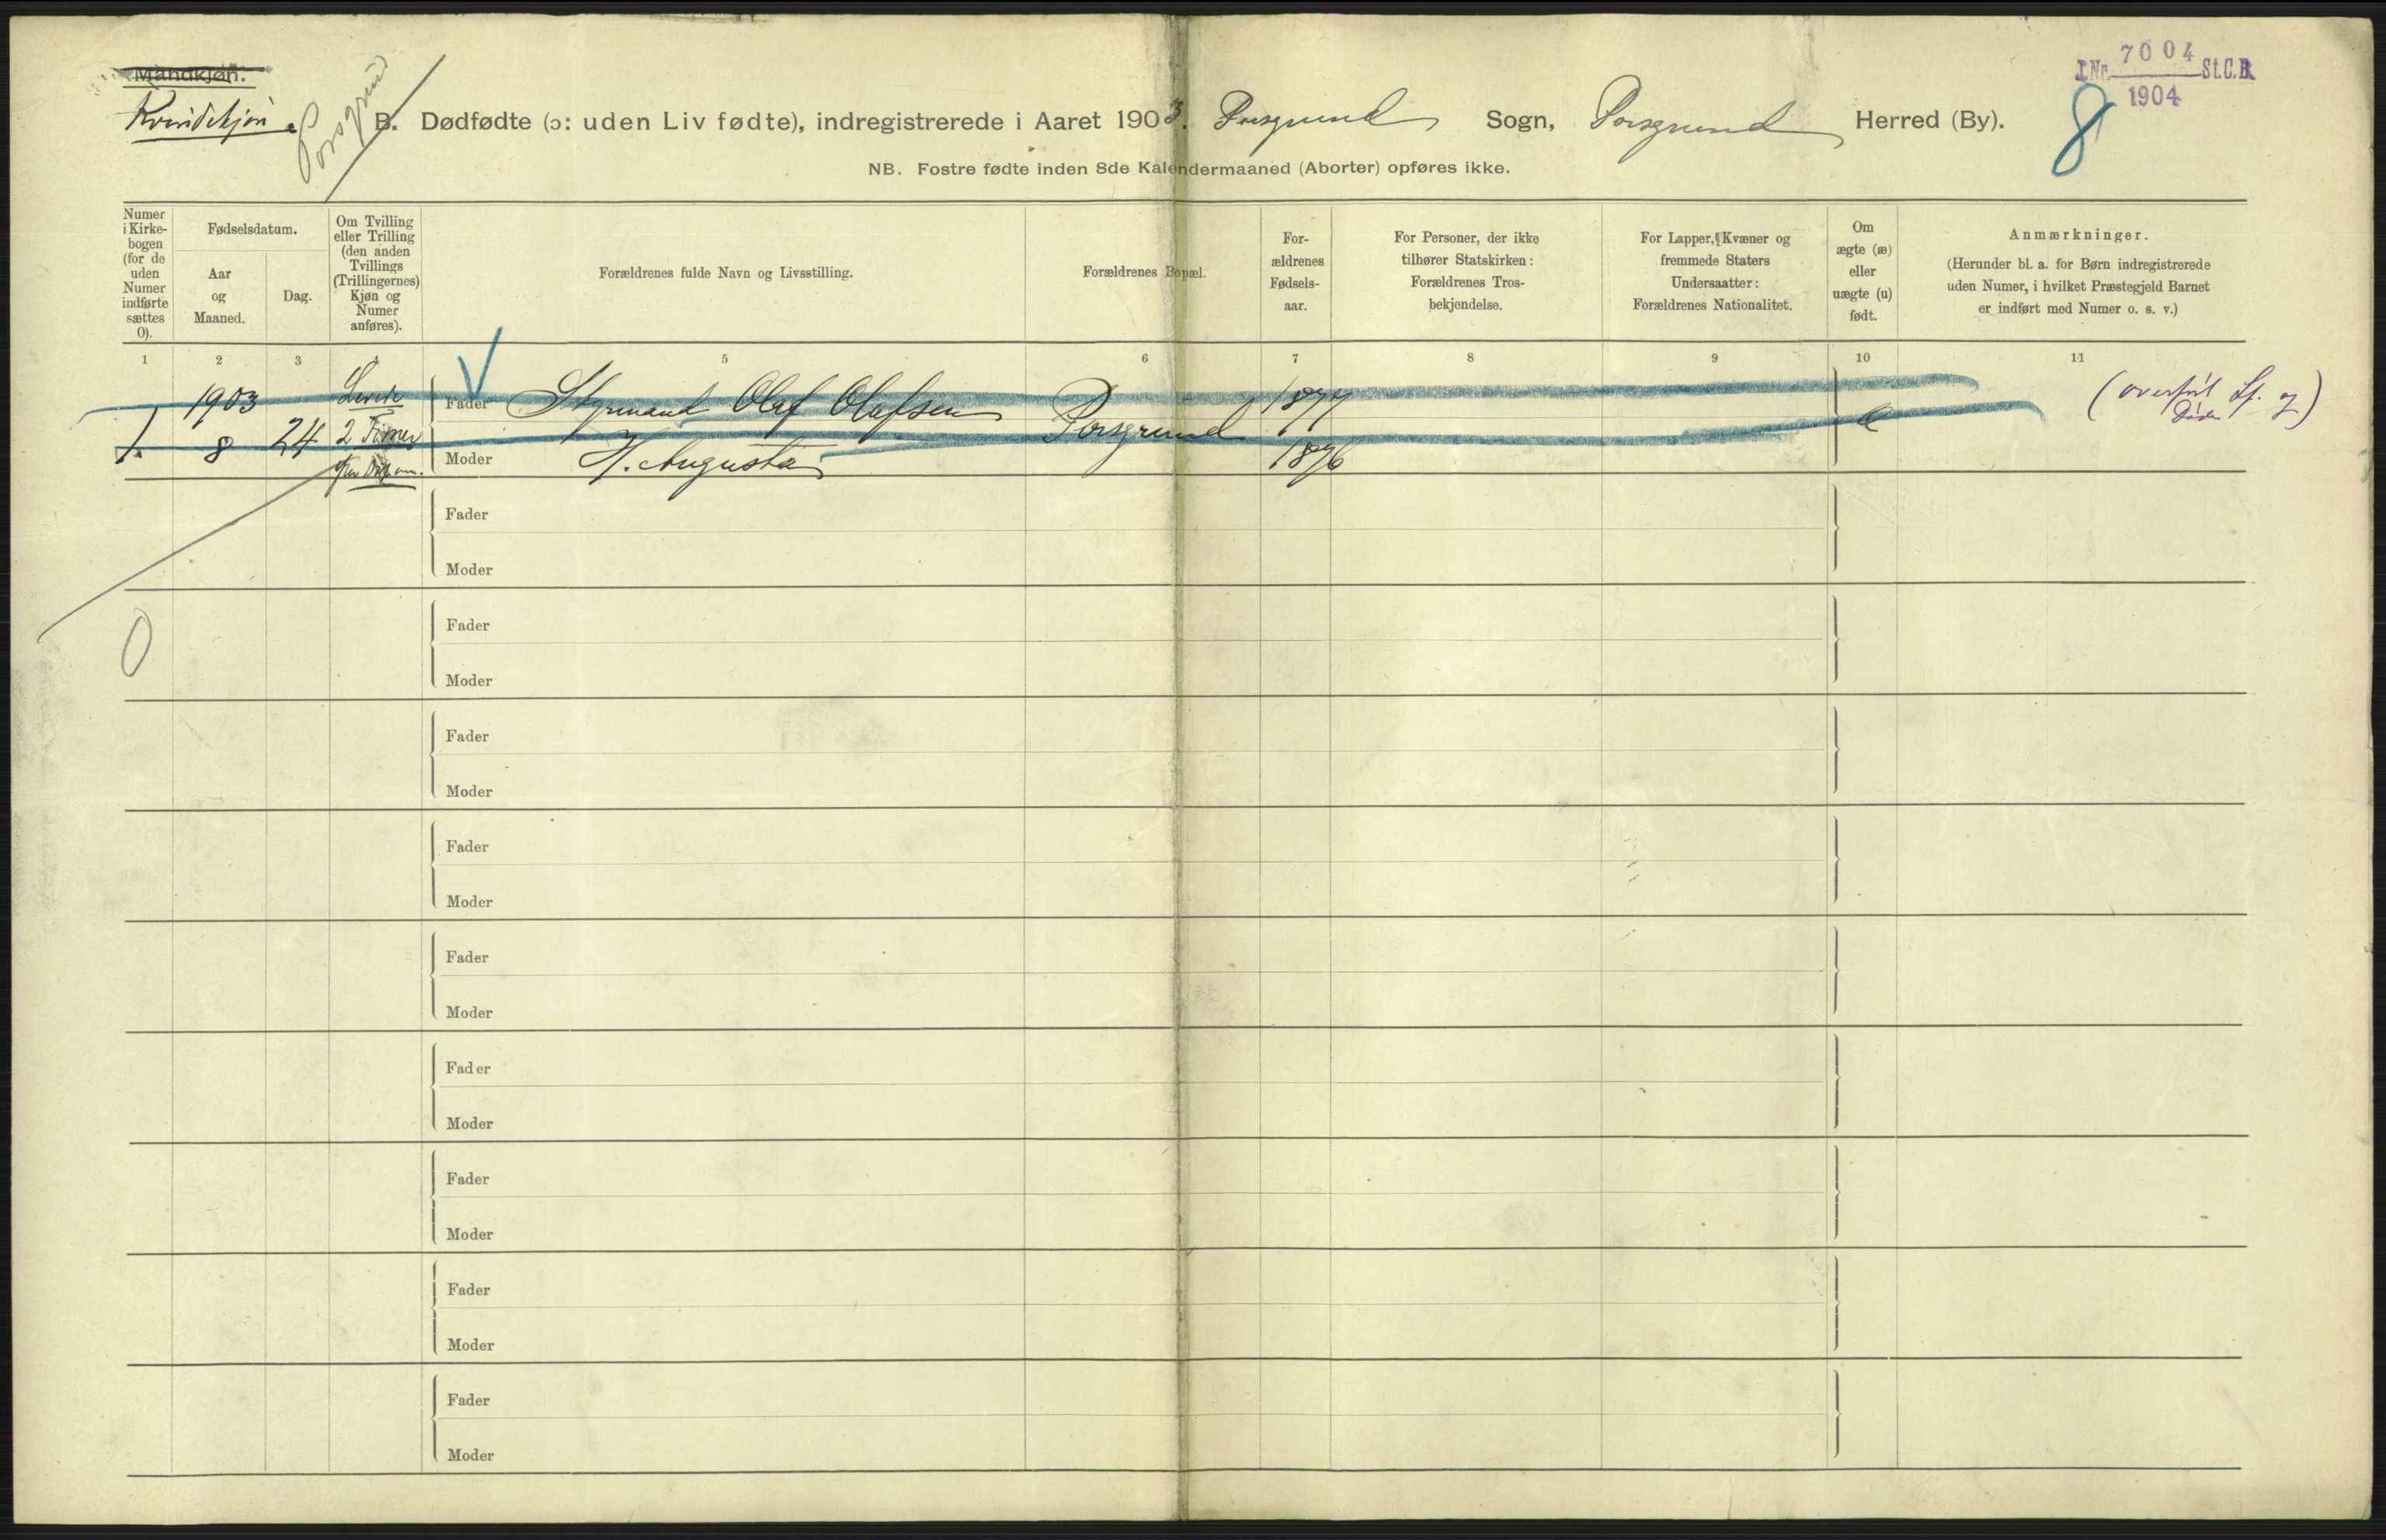 Mandkjøn.
Kvindekjøn
Porsgrund
B. Dødfødte (ɔ: uden Liv fødte), indregistrerede i Aaret 1903. Porsgrund Sogn, Porsgrund Herred (By).
I Nr. 7004 St.C.B.
1904
8
NB. Fostre fødte inden 8de Kalendermaaned (Aborter) opføres ikke.
Numer i Kirke-bogen (for de uden Numer indførte sættes 0).
Fødselsdatum.
Aar og Maaned.
Dag.
Om Tvilling eller Trilling (den anden Tvillings (Trillingernes) Kjøn og Numer anføres).
Forældrenes fulde Navn og Livsstilling.
Forældrenes Bopæl.
For-ældrenes Fødsels-aar.
For Personer, der ikke tilhører Statskirken: Forældrenes Tros-bekjendelse.
For Lapper, Kvæner og fremmede Staters Undersaatter: Forældrenes Nationalitet.
Om ægte (æ) eller uægte (u) født.
Anmærkninger.
(Herunder bl. a. for Børn indregistrerede uden Numer, i hvilket Præstegjeld Barnet er indført med Numer o. s. v.)
1 2 3 4 5 6 7 8 9 10 11
1903 Levede Fader Styrmand Olaf Olafsen Porsgrund 1877 (overført Lf. og Døde)
1. 8 24 2 Timer
Moder H. Augusta 1876
Fader
Moder
0
Fader
Moder
Fader
Moder
Fader
Moder
Fader
Moder
Fader
Moder
Fader
Moder
Fader
Moder
Fader
Moder